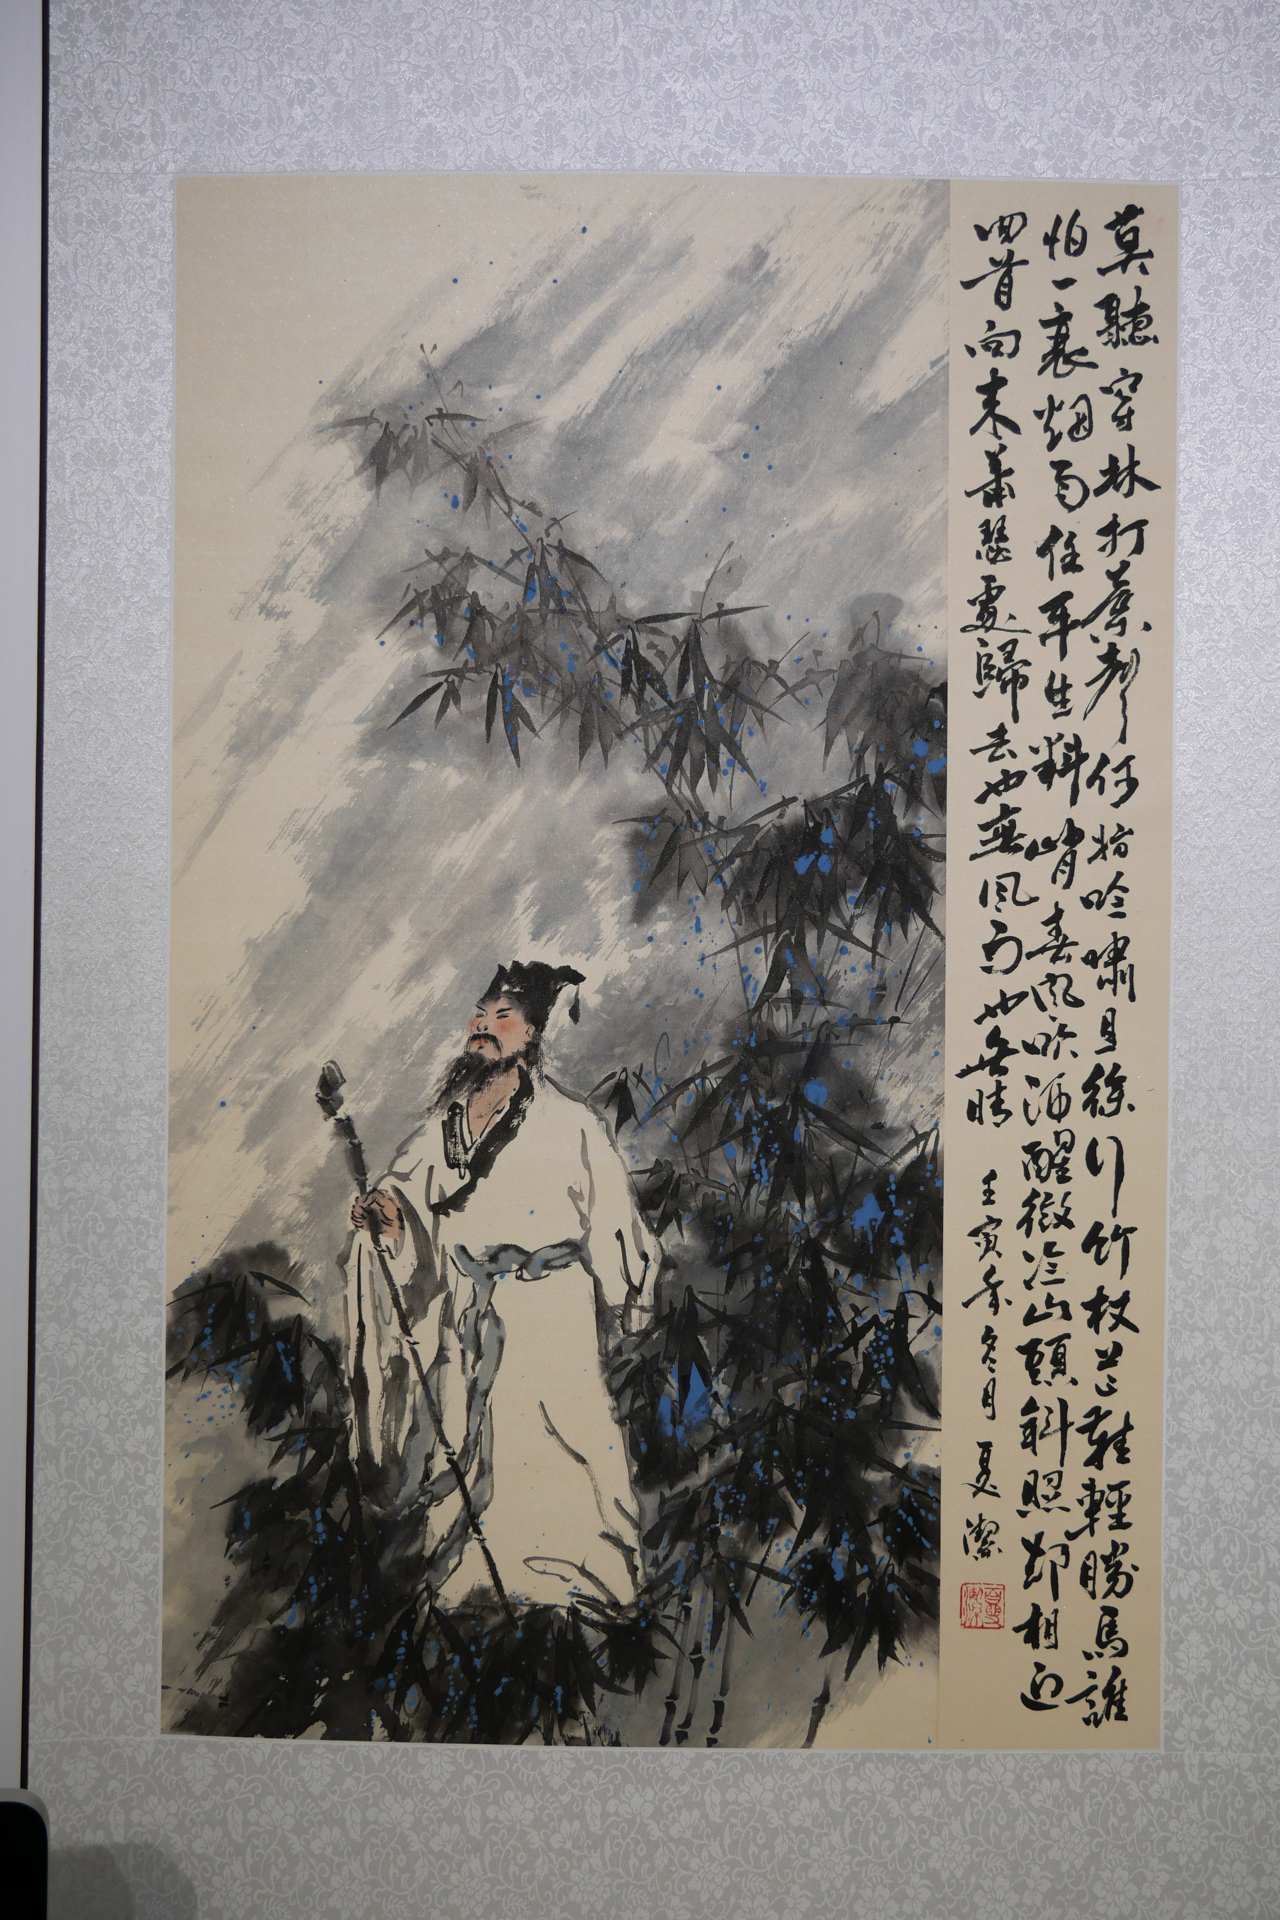 莫聽穿林打葉聲何妨吟嘯且徐行竹杖芒鞋輕勝馬誰
怕一蓑烟雨任平生料峭春風吹酒醒微冷山頭斜照却相迎
回首向來蕭瑟處歸去也無風雨也無晴
壬寅年冬月 夏潔
夏潔